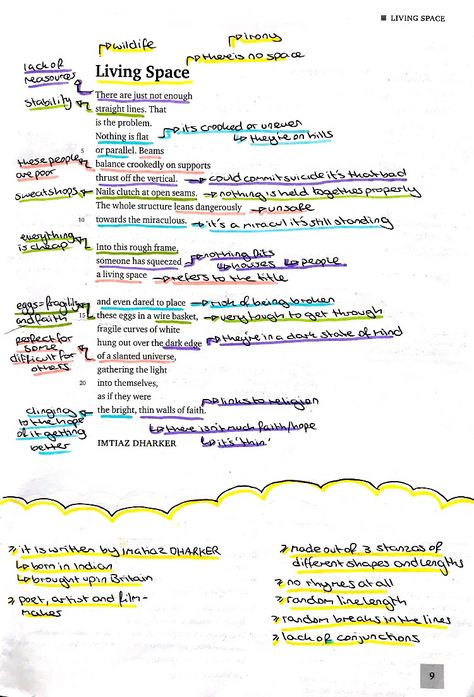 LIVING SPACE
wildlife
irony
there is no space
lack of
reasources
Living Space
stability
There are just not enough
straight lines. That
is the problem.
Nothing is flat
it's crooked or uneven
they're on hills
or parallel. Beams
these people
are poor
balance crookedly on supports
thrust off the vertical.
could commit suicide it's that bad
sweatshops
Nails clutch at open seams.
nothing is held together properly
The whole structure leans dangerously
unsafe
10 towards the miraculous.
it's a miracul it's still standing
everything
is cheap
Into this rough frame,
nothing fits
someone has squeezed
houses
people
a living space
refers to the title
eggs = fragility
and faith
and even dared to place
risk of being broken
15 these eggs in a wire basket,
very tough to get through
perfect for
some
difficult for
others
fragile curves of white
hung out over the dark edge
they're in a dark state of mind
of a slanted universe,
gathering the light
20 into themselves,
as if they were
links to religion
clinging
to the hope
of it getting
better
the bright, thin walls of faith.
there isn't much faith/hope
it's 'thin'
IMTIAZ DHARKER
it is written by Imtiaz DHARKER
born in Indian
brought up in Britain
poet, artist and film-
maker
made out of 3 stanzas of
different shapes and lengths
no rhymes at all
random line length
random breaks in the lines
lack of conjunctions
9